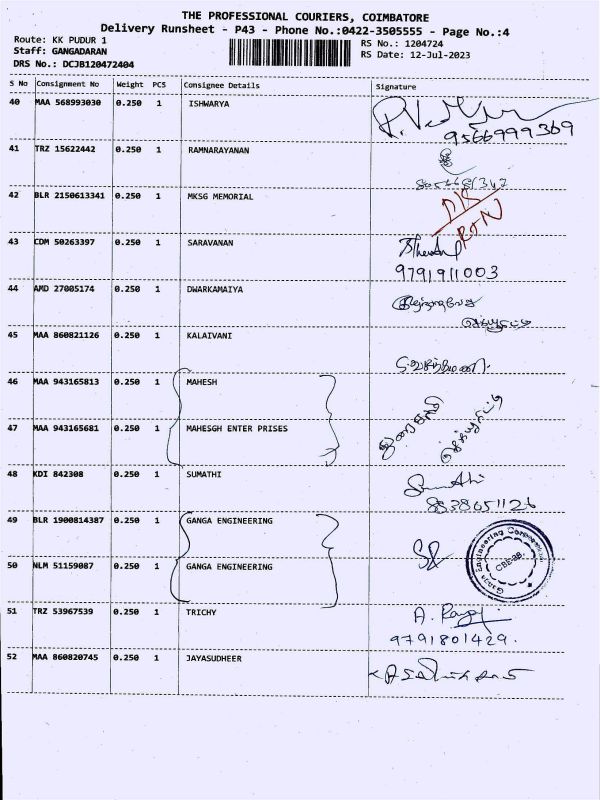 THE PROFESSIONAL COURIERS, COIMBATORE
Delivery Runsheet - P43 - Phone No.:0422-3505555 - Page No.:4
Route: KK PUDUR 1 RS No.: 1204724
Staff: GANGADARAN RS Date: 12-Jul-2023
DRS No.: DCJB120472404
S No Consignment No Weight PCS Consignee Details Signature
40 MAA 568993030 0.250 1 ISHWARYA
9566999369
41 TRZ 15622442 0.250 1 RAMNARAYANAN
42 BLR 2150613341 0.250 1 MKSG MEMORIAL
D/K
RTN
43 CDM 50263397 0.250 1 SARAVANAN
9791911003
44 AMD 27005174 0.250 1 DWARKAMAIYA
45 MAA 860821126 0.250 1 KALAIVANI
46 MAA 943165813 0.250 1 MAHESH
47 MAA 943165681 0.250 1 MAHESGH ENTER PRISES
48 KDI 842308 0.250 1 SUMATHI
49 BLR 1900814387 0.250 1 GANGA ENGINEERING
Ganga Engineering Corporation
50 NLM 51159087 0.250 1 GANGA ENGINEERING
51 TRZ 53967539 0.250 1 TRICHY
9791801429.
52 MAA 860820745 0.250 1 JAYASUDHEER